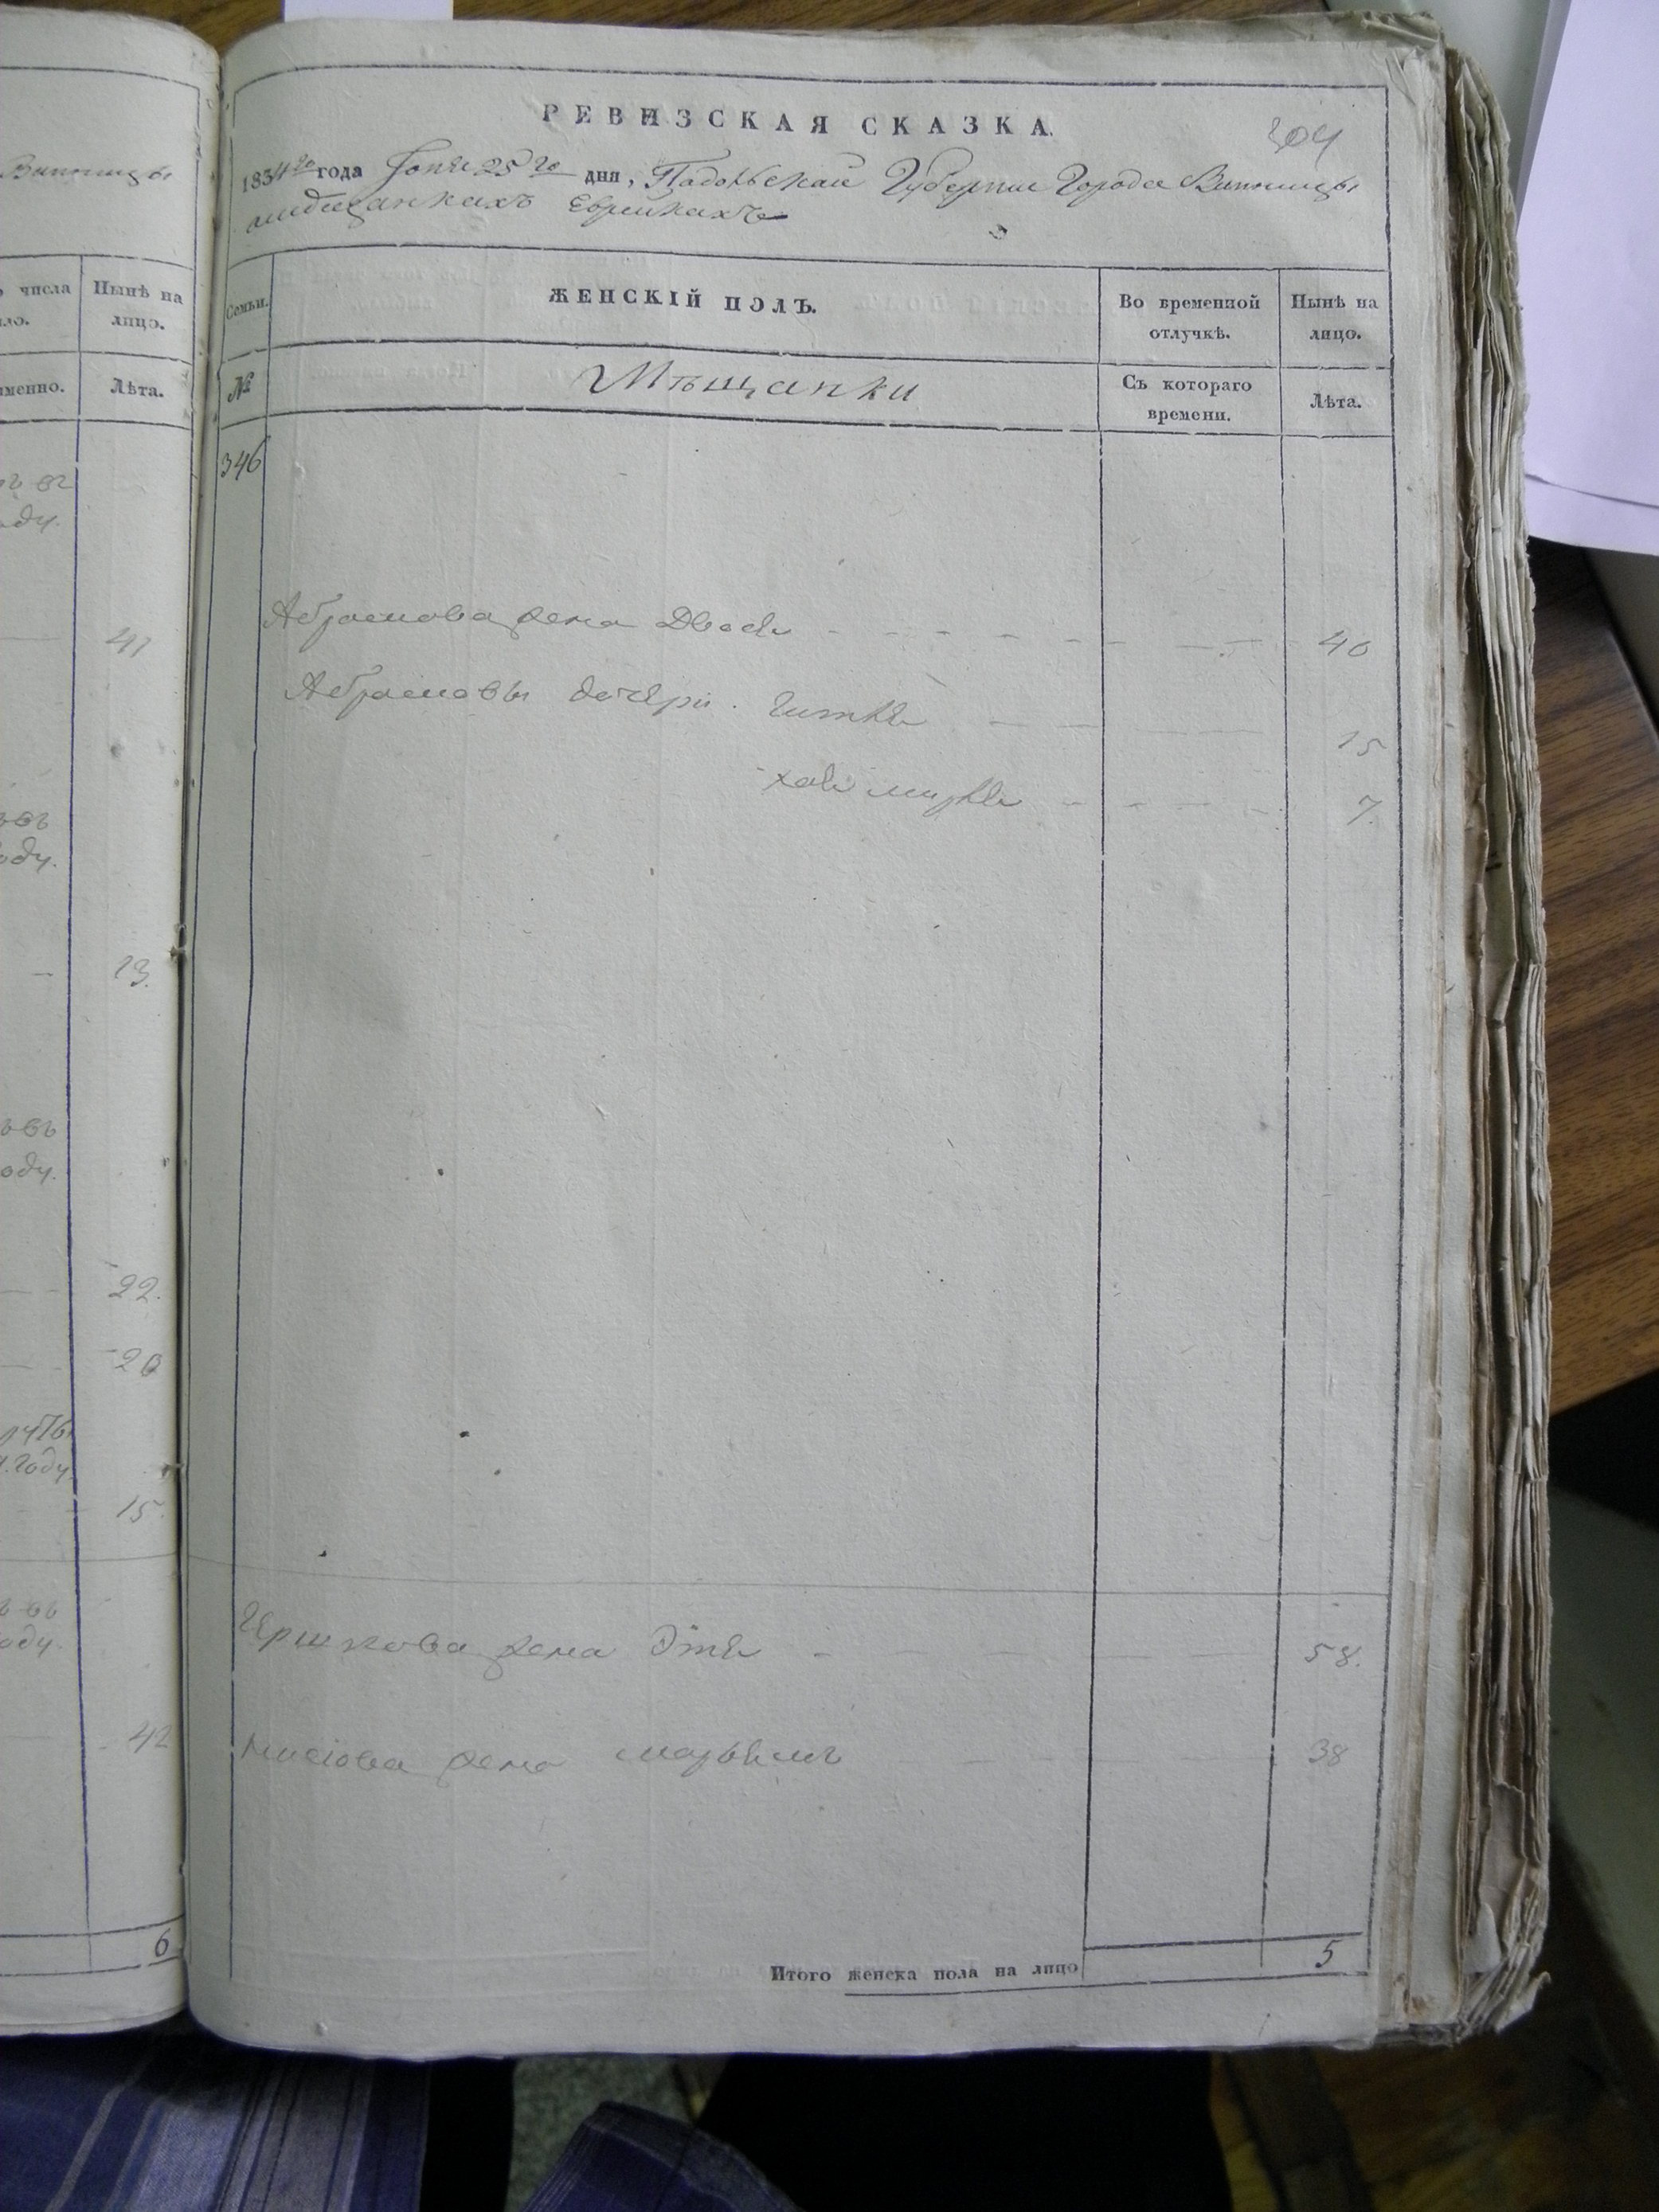 Винницы
числа
ло.
Нынѣ на
лицо.
именно.
Лѣта.
оду.
41
оду.
13.
оду.
22.
20
году.
15.
оду.
42
6
РЕВИЗСКАЯ СКАЗКА.
304
1834го года Iюня 25го дня, Подольской Губернии Города Винницы
мещанкахъ Еврейкахъ
Семьи.
ЖЕНСКІЙ ПОЛЪ.
Во временной
отлучкѣ.
Нынѣ на
лицо.
№
Мѣщанки
Съ котораго
времени.
Лѣта.
346
Абрамова жена Двося 40
Абрамовы дочери. Гитля 15
7.
Гершкова жена Этя 58.
жена 38
Итого женска пола на лицо 5